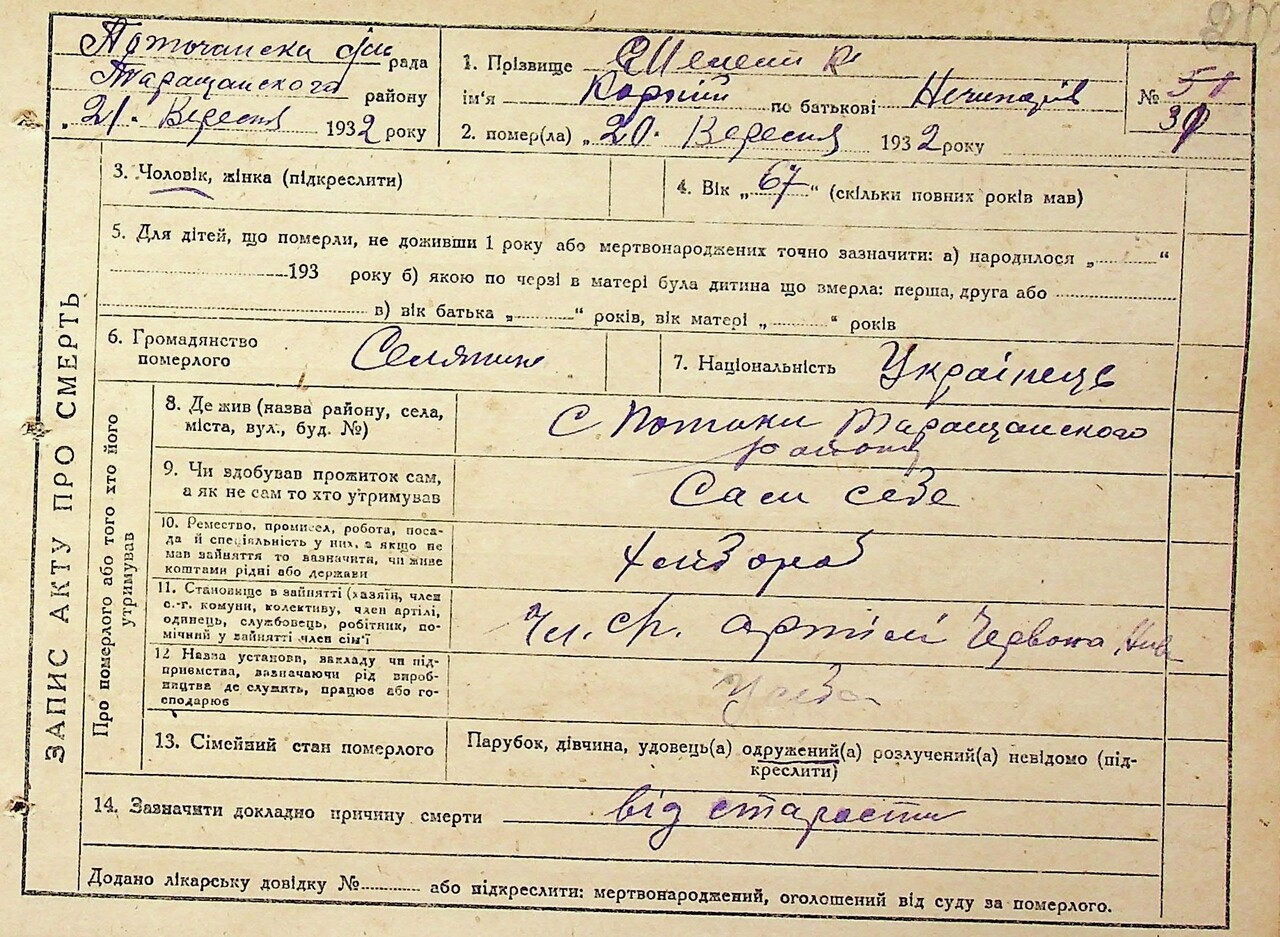 205
Поточанска с/рада
Таращанского району
„21. Вересня 1932 року
1. Прізвище Шелест
ім'я Корній по батькові Нечипорів
2. помер(ла) „20. Вересня 1932 року
№ 51
39
ЗАПИС АКТУ ПРО СМЕРТЬ
3. Чоловік, жінка (підкреслити)
4. Вік „67“ (скільки повних років мав)
5. Для дітей, що померли, не доживши 1 року або мертвонароджених точно зазначити: а) народилося „ “
193 року б) якою по черзі в матері була дитина що вмерла: перша, друга або
в) вік батька „ “ років, вік матері „ “ років
6. Громадянство
померлого
Селянин
7. Національність Українець
Про померлого або того хто його
утримував
8. Де жив (назва району, села,
міста, вул., буд. №)
С Потоки Таращанского
району
9. Чи вдобував прожиток сам,
а як не сам то хто утримував
Сам себе
10. Ремество, промисел, робота, поса-
да й спеціяльність у них, а якщо не
мав зайняття то зазначити, чи живе
коштами рідні або держави
Хлібороб
11. Становище в зайнятті (хазяїн, член
с.-г. комуни, колективу, член артілі,
одинець, службовець, робітник, по-
мічний у зайнятті член сім'ї
Чл. ср. артілі Червона Нива
12 Назва установи, закладу чи під-
приємства, зазначаючи рід вироб-
ництва де служить, працює або го-
сподарює
13. Сімейний стан померлого
Парубок, дівчина, удовець(а) одружений(а) розлучений(а) невідомо (під-
креслити)
14. Зазначити докладно причину смерти від старости
Додано лікарську довідку № або підкреслити: мертвонароджений, оголошений від суду за померлого.